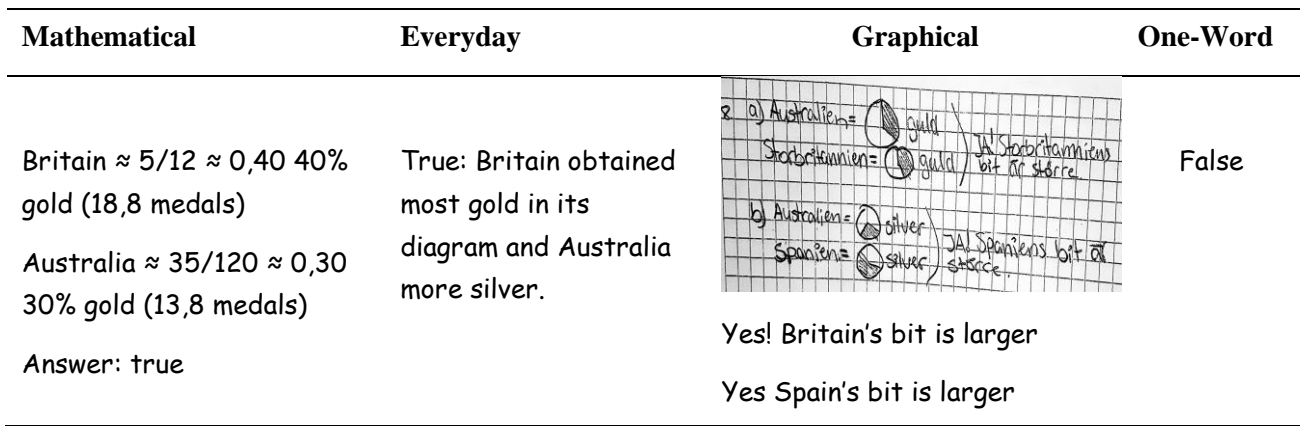 Mathematical Everyday Graphical One-Word
Britain ≈ 5/12 ≈ 0,40 40%
gold (18,8 medals)
Australia ≈ 35/120 ≈ 0,30
30% gold (13,8 medals)
Answer: true
True: Britain obtained
most gold in its
diagram and Australia
more silver.
8. a) Australien = guld
Storbritannien = guld
JA! Storbritanniens
bit är större.
b) Australien = silver
Spanien = silver
JA! Spaniens bit är
större.
Yes! Britain's bit is larger
Yes Spain's bit is larger
False